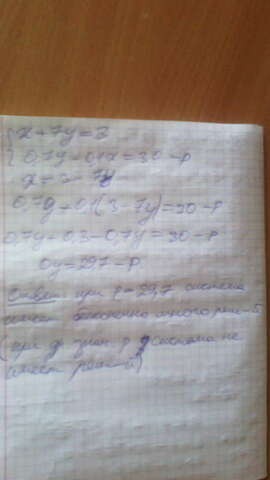 x+7y=3
0,7y-0,1x=30-p
x=3-7y
0,7y-0,1(3-7y)=30-p
0,7y-0,3-0,7y=30-p
0y=29,7-p
Ответ при p=29,7 система
имеет бесконечно много реш-й
(при др. знач p система не
имеет реш-й)